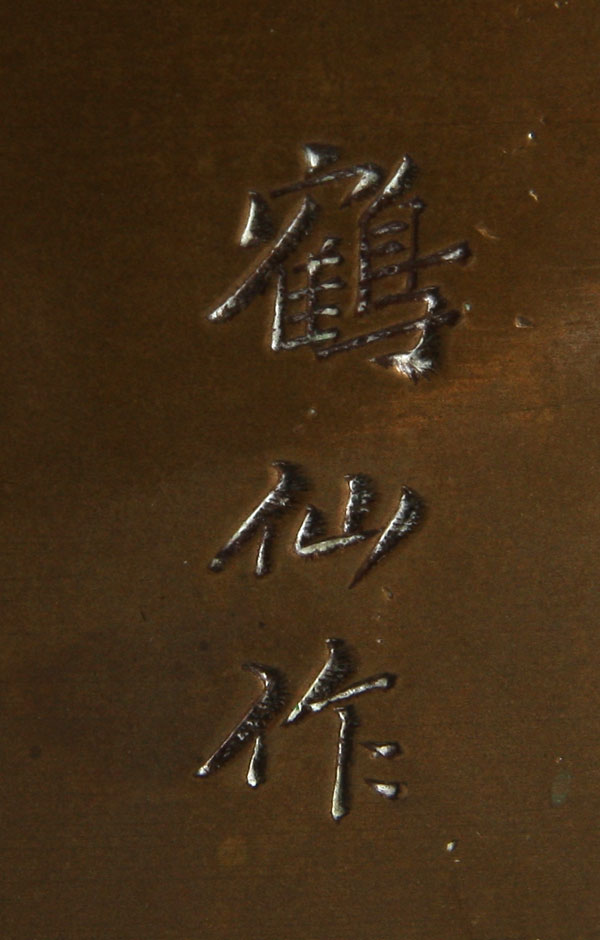 鶴仙作